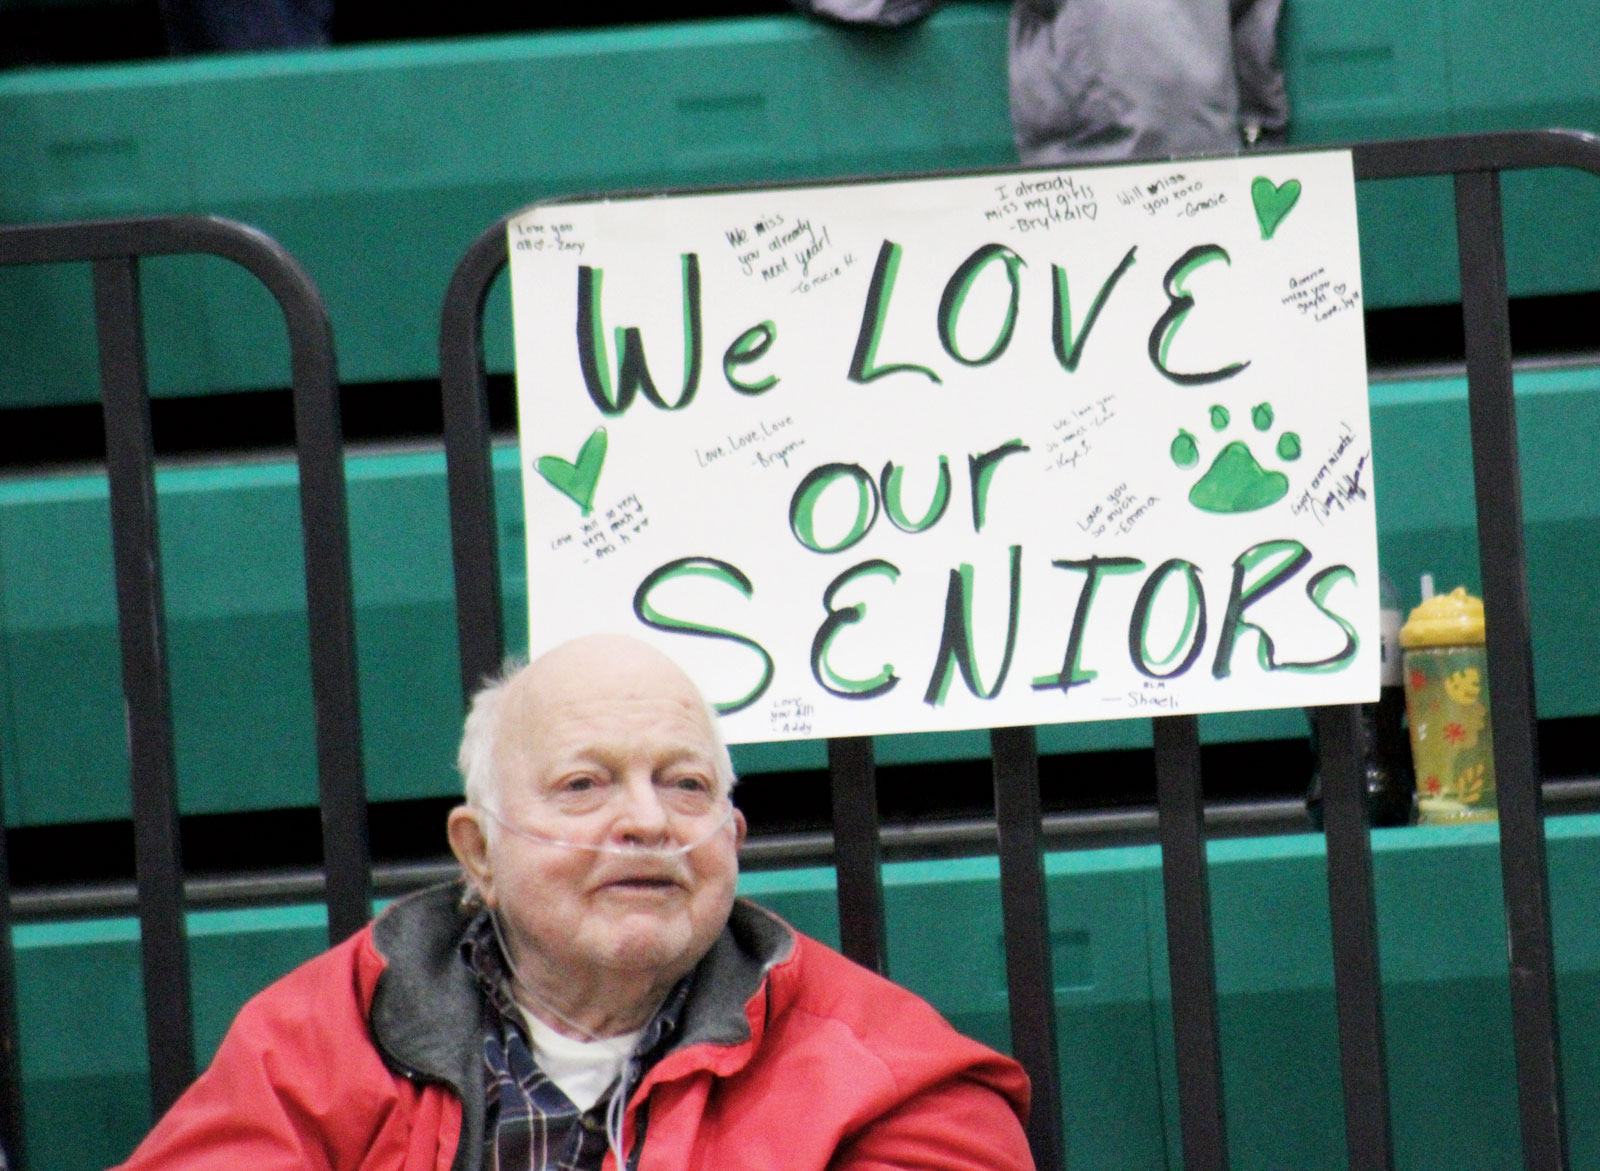 Love you
all ♡ - Zoey
We miss
you already
next year!
- Gracie H.
I already
miss my girls
- Brystal ♡
Will miss
you xoxo
- Gracie
We LOVE
Gonna
miss you
guys! ♡
Love,
Love, Love, Love
- Brynn
We love you
so much
our
Love you
so much
- Emma
Enjoy every minute!
Love you so very
very much
SENIORS
Love
you All!
- Addy
— Shaeli